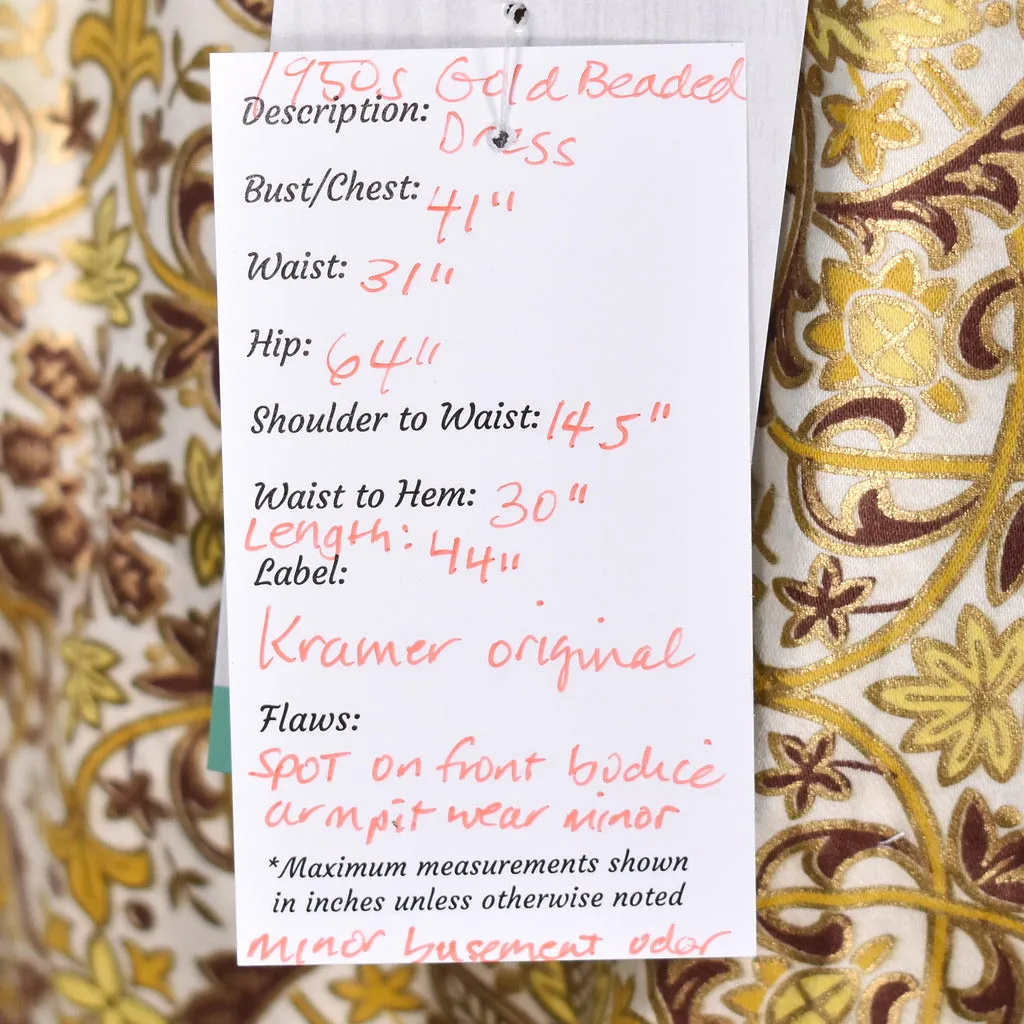 1950s Gold Beaded
Description: Dress
Bust/Chest: 41"
Waist: 31"
Hip: 64"
Shoulder to Waist: 14 5"
Waist to Hem: 30"
Length: 44"
Label:
Kramer original
Flaws:
SPOT on front bodice
armpit wear minor
*Maximum measurements shown
in inches unless otherwise noted
minor basement odor